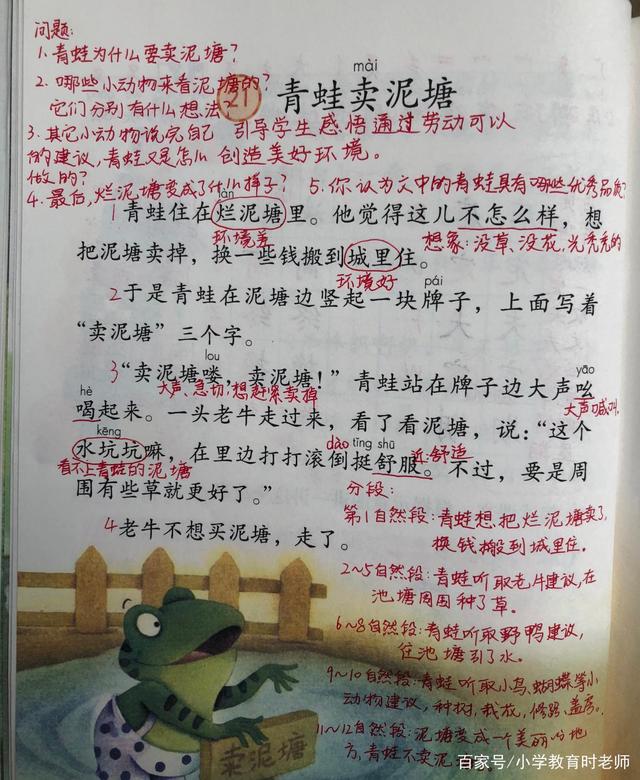 问题:
1.青蛙为什么要卖泥塘?
2.哪些小动物来看泥塘的?
它们分别有什么想法
3.其它小动物说完自己
的建议,青蛙又是怎么
做的?
4.最后,烂泥塘变成了什么样子?
引导学生感悟通过劳动可以
创造美好环境。
5.你认为文中的青蛙具有哪些优秀品质?
mài
21 青蛙卖泥塘
làn
1 青蛙住在烂泥塘里。他觉得这儿不怎么样,想
环境差
想象:没草、没花,光秃秃的
把泥塘卖掉,换一些钱搬到城里住。
环境好
pái
2 于是青蛙在泥塘边竖起一块牌子,上面写着
“卖泥塘”三个字。
lou
yāo
3 “卖泥塘喽,卖泥塘!”青蛙站在牌子边大声吆
大声、急切,想赶紧卖掉
大声喊叫
hè
喝起来。一头老牛走过来,看了看泥塘,说:“这个
kēng
dào tǐng shū
近:舒适
水坑坑嘛,在里边打打滚倒挺舒服。不过,要是周
看不上青蛙的泥塘
围有些草就更好了。”
4 老牛不想买泥塘,走了。
分段:
第1自然段:青蛙想把烂泥塘卖了,
换钱搬到城里住。
2~5自然段:青蛙听取老牛建议,在
池塘周围种了草。
6~8自然段:青蛙听取野鸭建议,
往池塘引了水。
9~10自然段:青蛙听取小鸟、蝴蝶等小
动物建议,种树,栽花,修路,盖房。
11~12自然段:泥塘变成一个美丽的地
方,青蛙不卖泥
卖泥塘
百家号/小学教育时老师